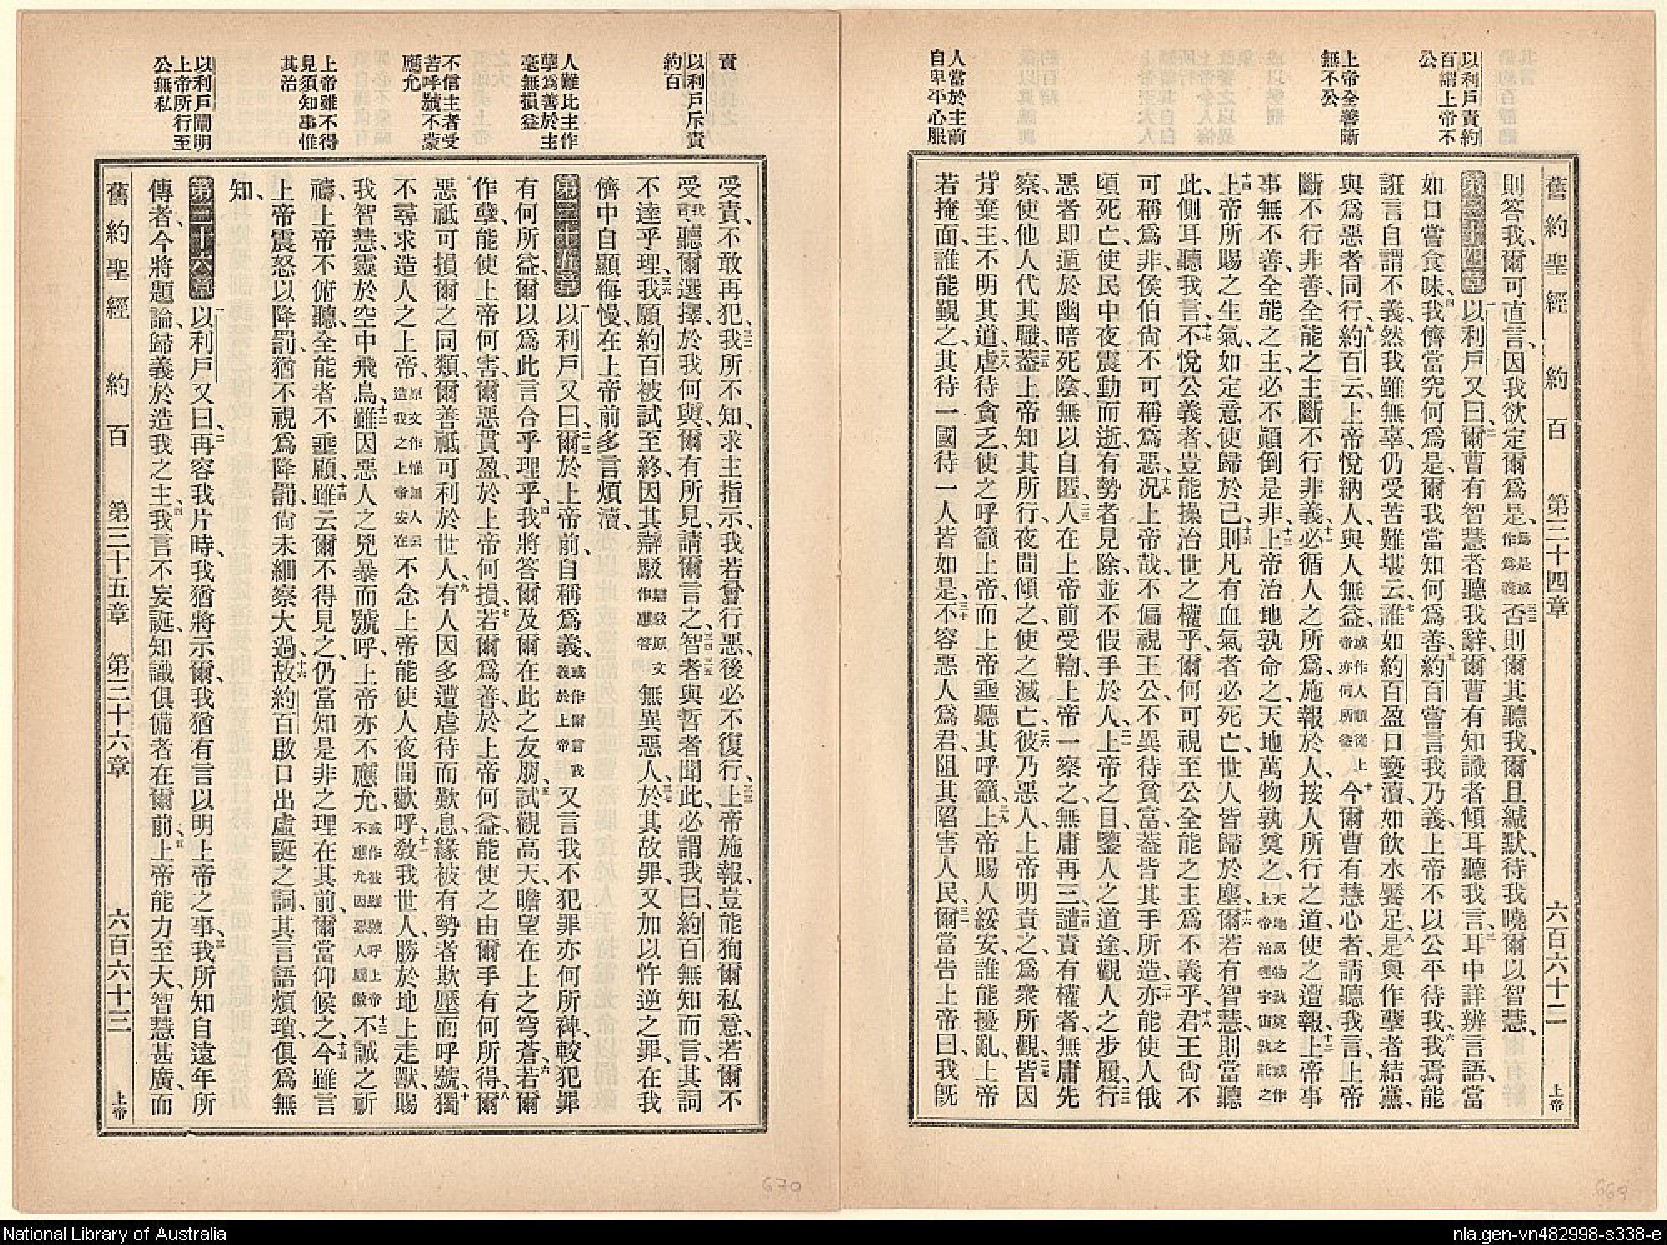 以利戶責約
百謂上帝不
公
上帝全善斷
無不公
人當於主前
自卑平心服
舊約聖經 約百 第三十四章 六百六十二 上帝
則答我、爾可直言、因我欲定爾爲是、爲是或作爲義否則爾其聽我、爾且緘默、待我曉爾以智慧、
第三十四章 以利戶又曰、爾曹有智慧者聽我辭、爾曹有知識者傾耳聽我言、耳中詳辨言語、當
如口嘗食味、我儕當究何爲是、爾我當知何爲善、約百嘗言我乃義、上帝不以公平待我、我焉能
誑言自謂不義、然我雖無辜、仍受苦難堪云、誰如約百盈口褻瀆、如飲水嬖足、是與作孽者結黨、
與爲惡者同行、約百云、上帝悅納人、與人無益、或作人順從上帝亦何所益今爾曹有慧心者、請聽我言、上帝
斷不行非善、全能之主斷不行非義、必循人之所爲、施報於人、按人所行之道、使之遭報、上帝事
事無不善、全能之主、必不顚倒是非、上帝治地孰命之、天地萬物孰奠之、天地萬物孰奠之或作上帝治理宇宙孰託之
上帝所賜之生氣、如定意使歸於己、則凡有血氣者必死亡、世人皆歸於塵、爾若有智慧、則當聽
此、側耳聽我言、不悅公義者、豈能操治世之權乎、爾何可視至公全能之主爲不義乎、君王尙不
可稱爲非、侯伯尙不可稱爲惡、况上帝哉、不偏視王公、不異待貧富、蓋皆其手所造、亦能使人俄
頃死亡、使民中夜震動而逝、有勢者見除、並不假手於人、上帝之目鑒人之道途、觀人之步履、行
惡者即遁於幽暗死陰、無以自匿、人在上帝前受鞫、上帝一察之、無庸再三譴責有權者、無庸先
察、使他人代其職、蓋上帝知其所行、夜間傾之、使之滅亡、彼乃惡人、上帝明責之、爲衆所觀、皆因
背棄主、不明其道、虐待貧乏、使之呼籲上帝、而上帝垂聽其呼籲、上帝賜人綏安、誰能擾亂、上帝
若掩面、誰能觀之、其待一國待一人皆如是、不容惡人爲君、阻其陷害人民、爾當告上帝曰、我旣
責
以利戶斥責
約百
人雖比主作
孽爲善於主
毫無損益
不信主者受
苦呼號不蒙
應允
上帝雖不得
見須知事惟
其治
以利戶闡明
上帝所行至
公無私
受責、不敢再犯、我所不知、求主指示、我若曾行惡、後必不復行、上帝施報、豈能徇爾私意、若爾不
受、我言聽爾選擇、於我何與、爾有所見、請爾言之、智者與哲者聞此、必謂我曰、約百無知而言、其詞
不達乎理、我願約百被試至終、因其辯駁、辯駁原文作應答無異惡人、於其故罪、又加以忤逆之罪、在我
儕中自顯侮慢、在上帝前多言煩瀆、
第三十五章 以利戶又曰、爾於上帝前自稱爲義、或作爾言我義於上帝又言我不犯罪亦何所裨、較犯罪
有何所益、爾以爲此言合乎理乎、我將答爾及爾在此之友朋、試觀高天、瞻望在上之穹蒼、若爾
作孽、能使上帝何害、爾惡貫盈、於上帝何損、若爾爲善、於上帝何益、能使之由爾手有何所得、爾
惡祇可損爾之同類、爾善祇可利於世人、有人因多遭虐待而歎息、緣被有勢者欺壓而呼號、獨
不尋求造人之上帝、原文作惟無人云造我之上帝安在不念上帝能使人夜間歡呼、敎我世人、勝於地上走獸、賜
我智慧、靈於空中飛鳥、雖因惡人之兇暴而號呼、上帝亦不應允、或作彼雖號呼上帝不應允因惡人驕傲不誠之祈
禱、上帝不俯聽、全能者不垂顧、雖云爾不得見之、仍當知是非之理在其前、爾當仰候之、今雖言
上帝震怒以降罰、猶不視爲降罰、尙未細察大過、故約百啟口出虛誕之詞、其言語煩瑣、俱爲無
知、
第三十六章 以利戶又曰、再容我片時、我猶將示爾、我猶有言以明上帝之事、我所知自遠年所
傳者、今將題論、歸義於造我之主、我言不妄誕、知識俱備者在爾前、上帝能力至大、智慧甚廣、而
舊約聖經 約百 第三十五章 第三十六章 六百六十三 上帝
670
669
National Library of Australia
nla.gen-vn482998-s338-e